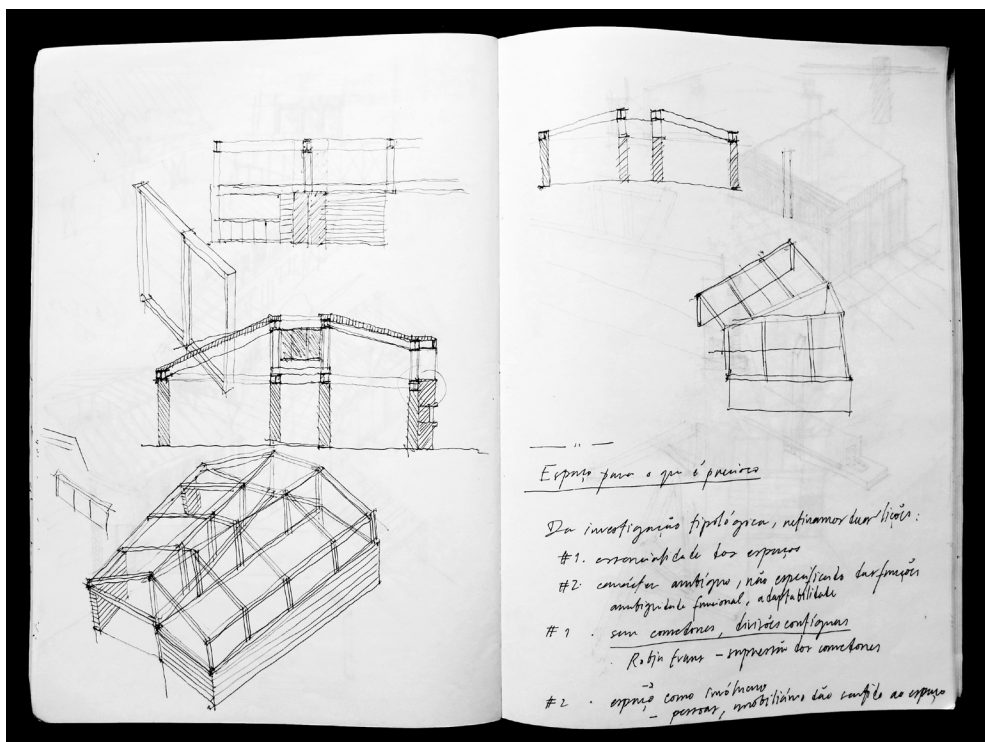 Espaço para o que é precioso
Da investigação tipológica, retiramos duas lições:
#1. essencialidade dos espaços
#2. carácter ambíguo, não especificado das funções
ambiguidade funcional, adaptabilidade
#1. sem corredores, divisões contíguas
Robin Evans - supressão dos corredores
#2. espaço como invólucro
- pessoas, mobiliário dão sentido ao espaço